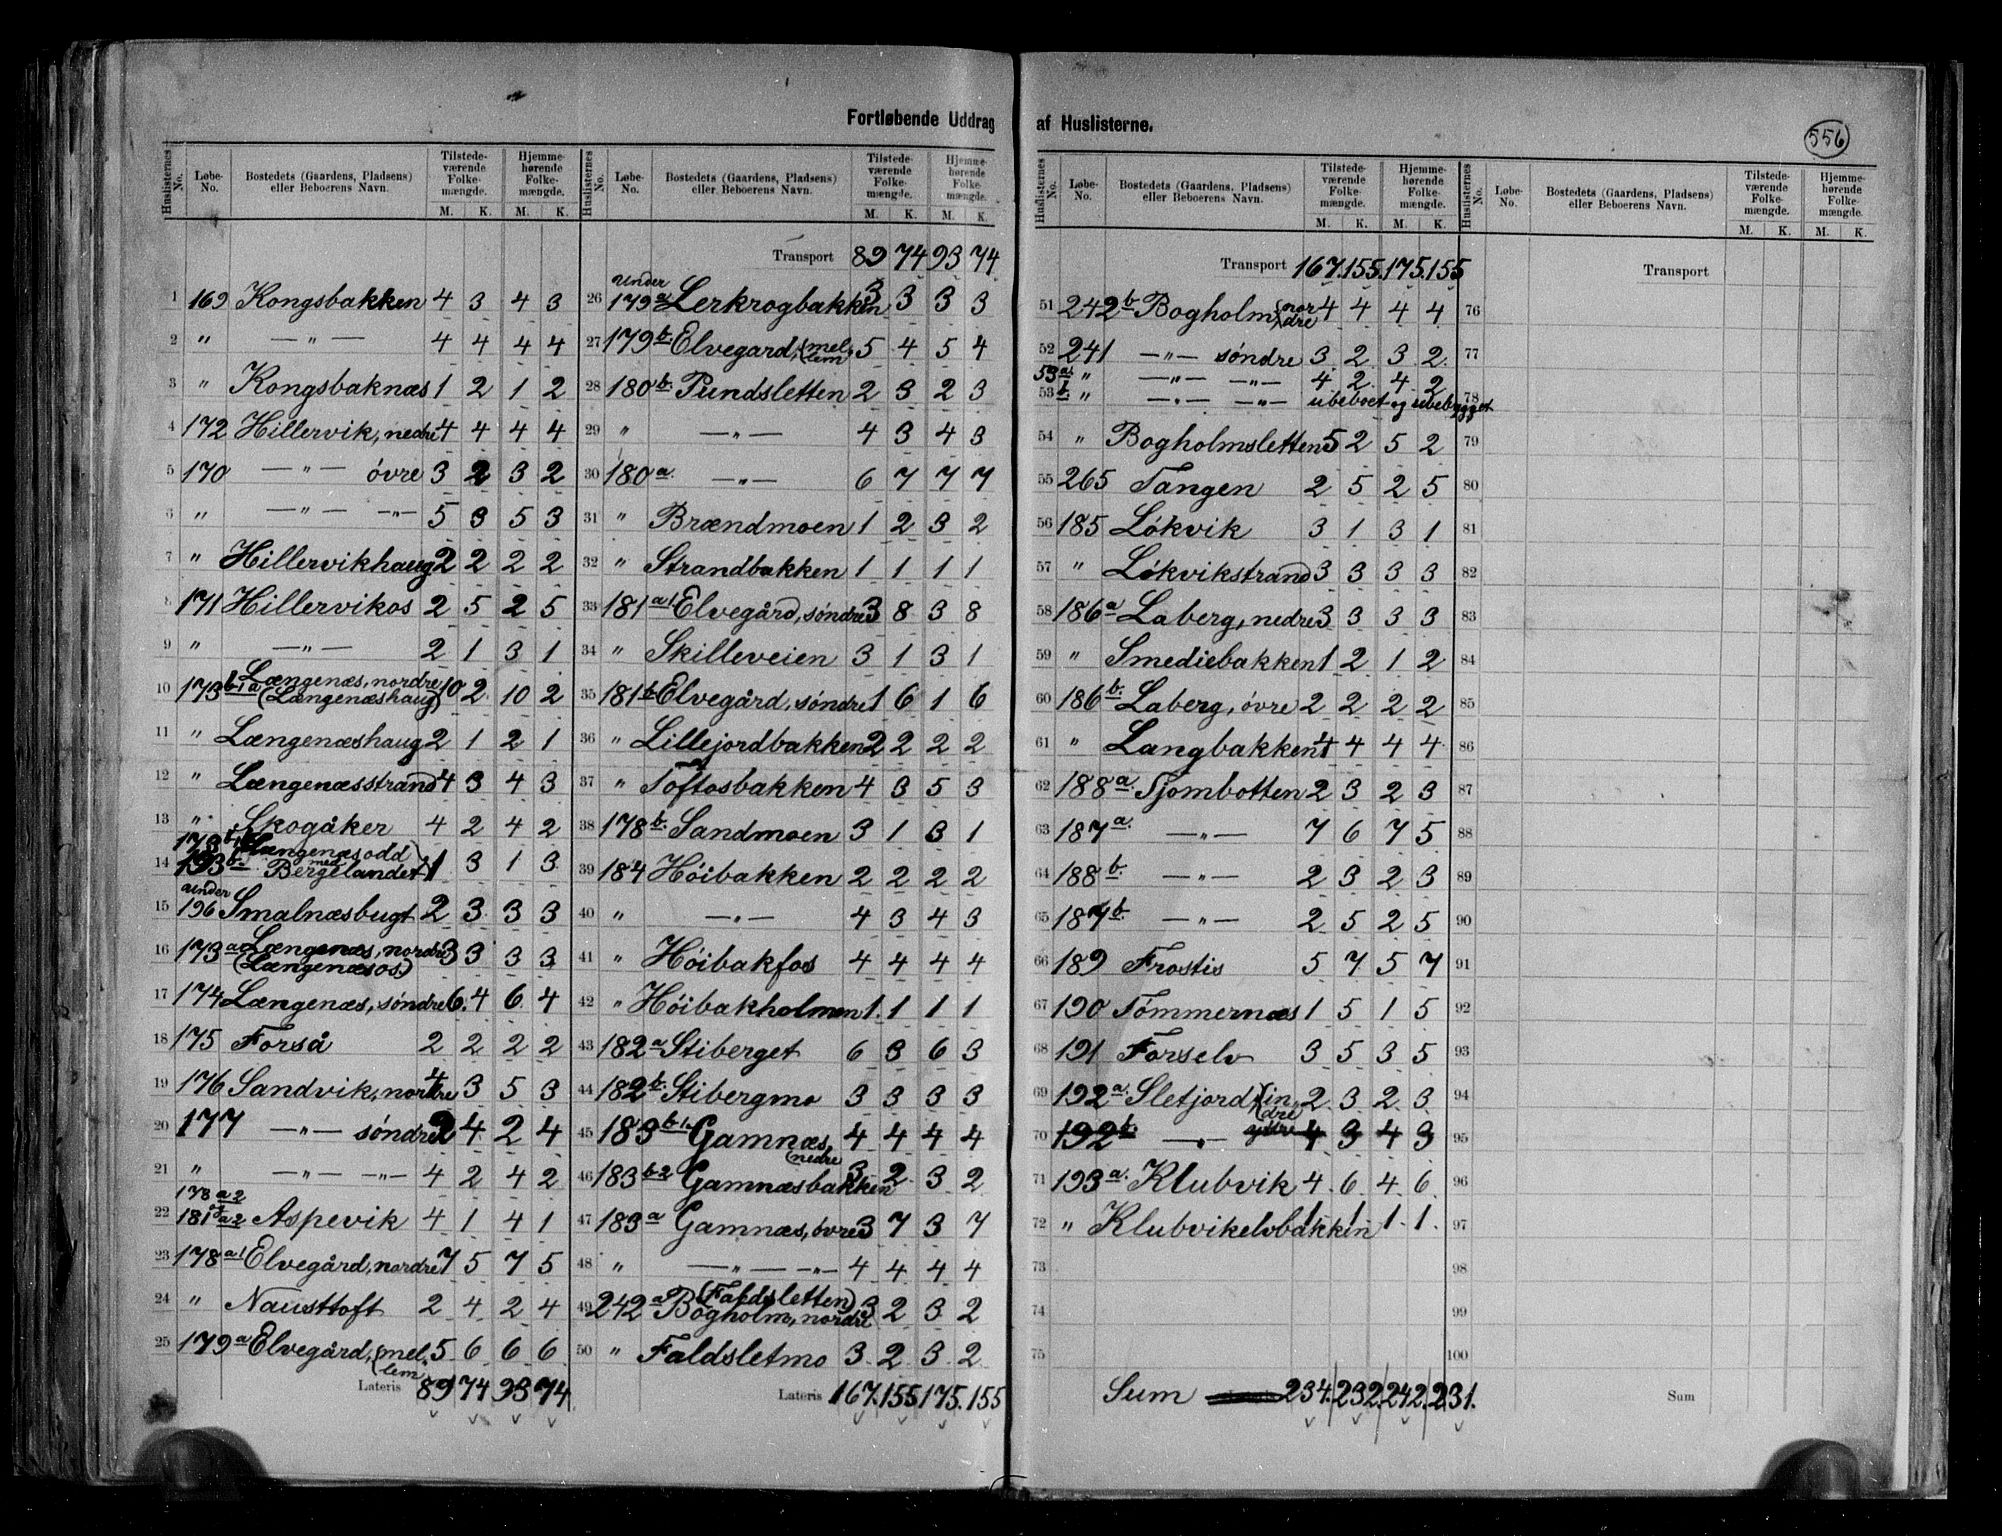 Fortløbende Uddrag af Huslisterne.
556
Huslisternes No. Løbe-No. Bostedets (Gaardens, Pladsens) eller Beboerens Navn. Tilstedeværende Folkemængde. M. K. Hjemmehørende Folkemængde. M. K.
1 169 Kongsbakken 4 3 4 3
2 " —"— 4 4 4 4
3 " Kongsbaknæs 1 2 1 2
4 172 Hillervik, nedre 4 4 4 4
5 170 —"— øvre 3 2 3 2
6 " —"— —"— 5 3 5 3
7 " Hillervikhaug 2 2 2 2
8 171 Hillervikos 2 5 2 5
9 " —"— 2 1 3 1
10 173 b1 a Længenæs, nordre (Længenæshaug) 10 2 10 2
11 " Længenæshaug 2 1 2 1
12 " Længenæsstrand 4 3 4 3
13 " Skogåker 4 2 4 2
14 193 b. Længenæsodd med Bergelandet 1 3 1 3
15 under 196 Smalnæsbugt 2 3 3 3
16 173 a Længenæs, nordre (Længenæsos) 3 3 3 3
17 174 Længenæs, søndre 6 4 6 4
18 175 Forså 2 2 2 2
19 176 Sandvik, nordre 4 3 5 3
20 177 —"— søndre 2 4 2 4
21 " —"— —"— 4 2 4 2
22 178 a2 181 a2 Aspevik 4 1 4 1
23 178 a1 Elvegård, nordre 7 5 7 5
24 " Nausttoft 2 4 2 4
25 179 a Elvegård, (mellem 5 6 6 6
Lateris 89 74 93 74
Huslisternes No. Løbe-No. Bostedets (Gaardens, Pladsens) eller Beboerens Navn. Tilstedeværende Folkemængde. M. K. Hjemmehørende Folkemængde. M. K.
Transport 89 74 93 74
26 under 179 a Lerkrogbakken 3 3 3 3
27 179 b. Elvegard, (mellem 5 4 5 4
28 180 b. Pundsletten 2 3 2 3
29 " —"— 4 3 4 3
30 180 a. —"— 6 7 7 7
31 " Brændmoen 1 2 3 2
32 " Strandbakken 1 1 1 1
33 181 a1 Elvegård, søndre 3 8 3 8
34 " Skilleveien 3 1 3 1
35 181 b Elvegård, søndre 1 6 1 6
36 " Lillejordbakken 2 2 2 2
37 " Toftosbakken 4 3 5 3
38 178 b. Sandmoen 3 1 3 1
39 184 Høibakken 2 2 2 2
40 " —"— 4 3 4 3
41 " Høibakfos 4 4 4 4
42 " Høibakholmen 1 1 1 1
43 182 a Stiberget 6 3 6 3
44 182 b. Stibergmo 3 3 3 3
45 183 b1. Gamnæs, nedre 4 4 4 4
46 183 b2 Gamnæsbakken 3 2 3 2
47 183 a Gamnæs, øvre 3 7 3 7
48 " —"— —"— 4 4 4 4
49 242 a (Faldsletten) Bogholm, nordre 3 2 3 2
50 " Faldsletmo 3 2 3 2
Lateris 167. 155 175. 155
Huslisternes No. Løbe-No. Bostedets (Gaardens, Pladsens) eller Beboerens Navn. Tilstedeværende Folkemængde. M. K. Hjemmehørende Folkemængde. M. K.
Transport 167. 155. 175. 155
51 242 b Bogholm (nordre 4 4 4 4
52 241 —"— søndre 3 2 3 2
53 a. " —"— —"— 4 2 4 2
53 b. " —"— —"— ubeboet og ubebygget
54 " Bogholmsletten 5 2 5 2
55 265 Tangen 2 5 2 5
56 185 Løkvik 3 1 3 1
57 " Løkvikstrand 3 3 3 3
58 186 a Laberg, nedre 3 3 3 3
59 " Smediebakken 1 2 1 2
60 186 b. Laberg, øvre 2 2 2 2
61 " Langbakken 4 4 4 4
62 188 a. Sjombotten 2 3 2 3
63 187 a. —"— 7 6 7 5
64 188 b. —"— 2 3 2 3
65 187 b. —"— 2 5 2 5
66 189 Frostis 5 7 5 7
67 190 Tømmernæs 1 5 1 5
68 191 Forselv 3 5 3 5
69 192 a. Sletjord (indre 2 3 2 3
70 192 b —"— ydre 4 3 4 3
71 193 a. Klubvik 4 6 4 6
72 " Klubvikelvbakken 1 1 1 1
73
74
75
Sum 234. 232. 242. 231.
Huslisternes No. Løbe-No. Bostedets (Gaardens, Pladsens) eller Beboerens Navn. Tilstedeværende Folkemængde. M. K. Hjemmehørende Folkemængde. M. K.
Transport
76
77
78
79
80
81
82
83
84
85
86
87
88
89
90
91
92
93
94
95
96
97
98
99
100
Sum